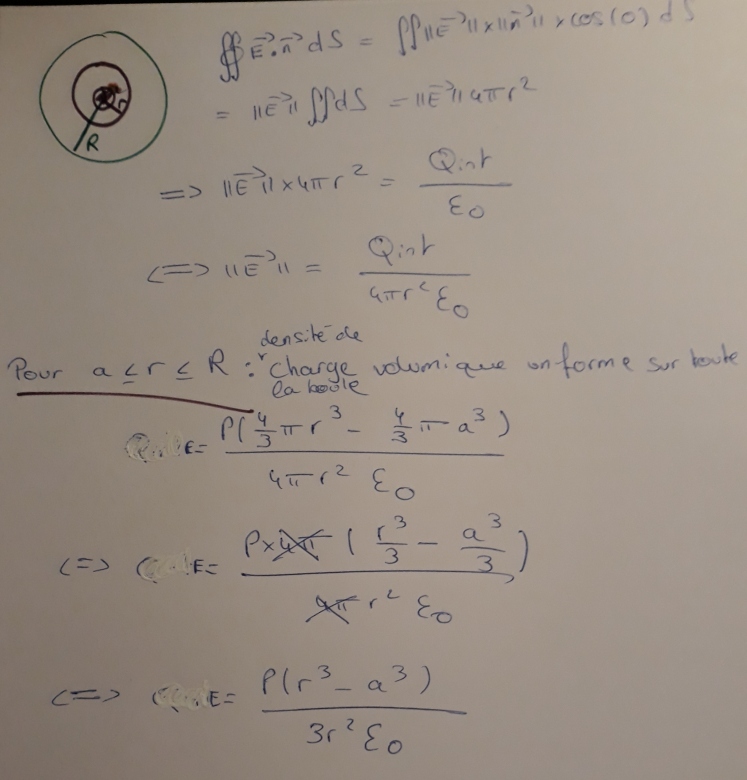 ∯ E⃗.n⃗ dS = ∬ ||E⃗|| x ||n⃗|| x cos(0) dS
= ||E⃗|| ∬ dS = ||E⃗|| 4πr²
R
=> ||E⃗|| x 4πr² = Qint / ε0
<=> ||E⃗|| = Qint / 4πr² ε0
Pour a ≤ r ≤ R : densité de charge volumique uniforme sur toute la boule
E = ρ(4/3 π r³ - 4/3 π a³) / 4πr² ε0
<=> E = ρ x 4π (r³/3 - a³/3) / 4π r² ε0
<=> E = ρ(r³ - a³) / 3r² ε0